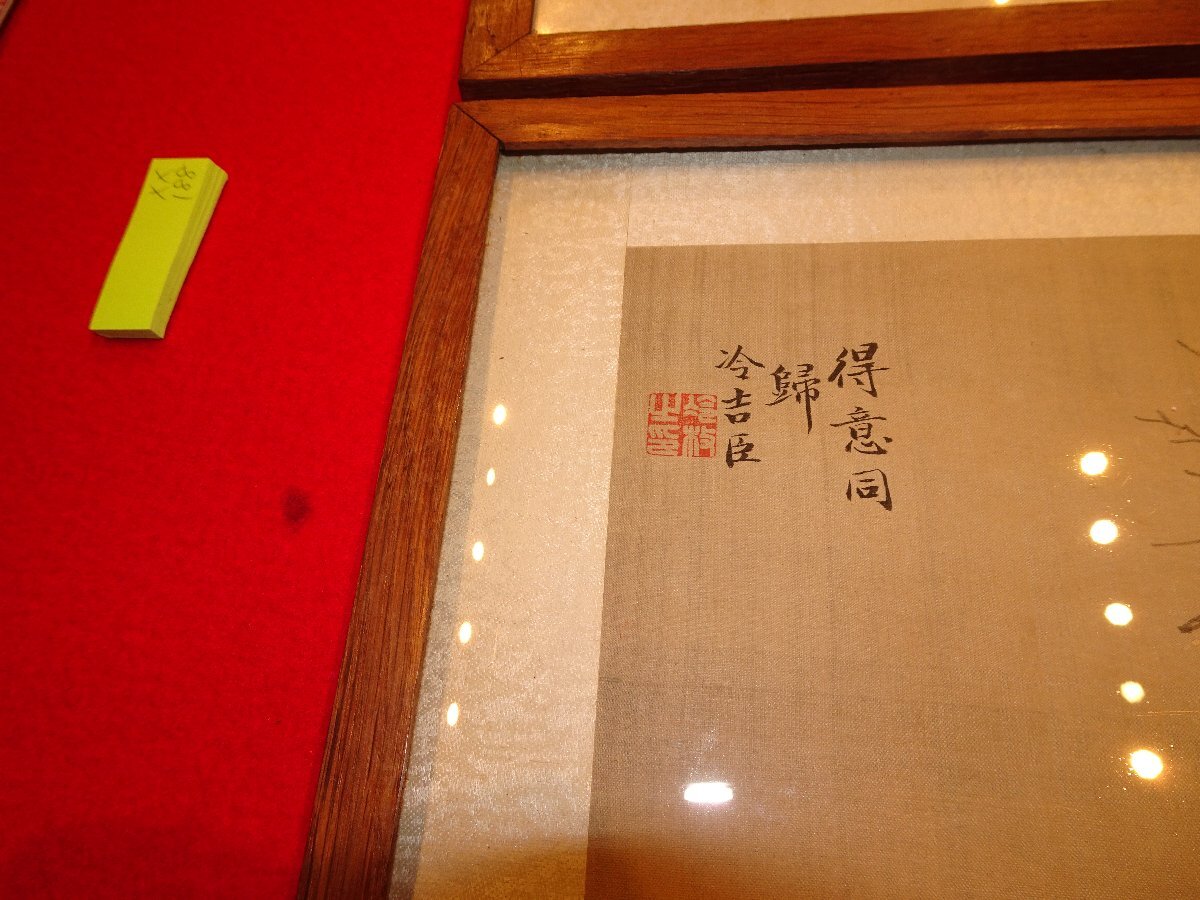 得意同
歸
冷吉臣
188